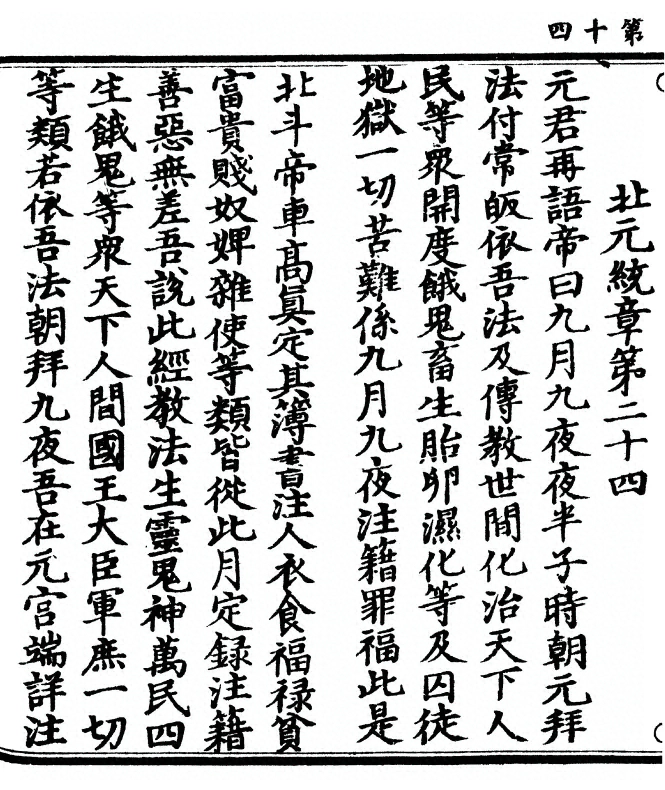 第十四
北元統章第二十四
元君再語帝曰九月九夜夜半子時朝元拜
法付常皈依吾法及傳教世間化治天下人
民等眾開度餓鬼畜生胎卵濕化等及囚徒
地獄一切苦難係九月九夜注籍罪福此是
北斗帝車高眞定其簿書注人衣食福禄貧
富貴賤奴婢雜使等類皆從此月定録注籍
善惡無差吾說此經教法生靈鬼神萬民四
生餓鬼等眾天下人間國王大臣軍庶一切
等類若依吾法朝拜九夜吾在元宫端詳注